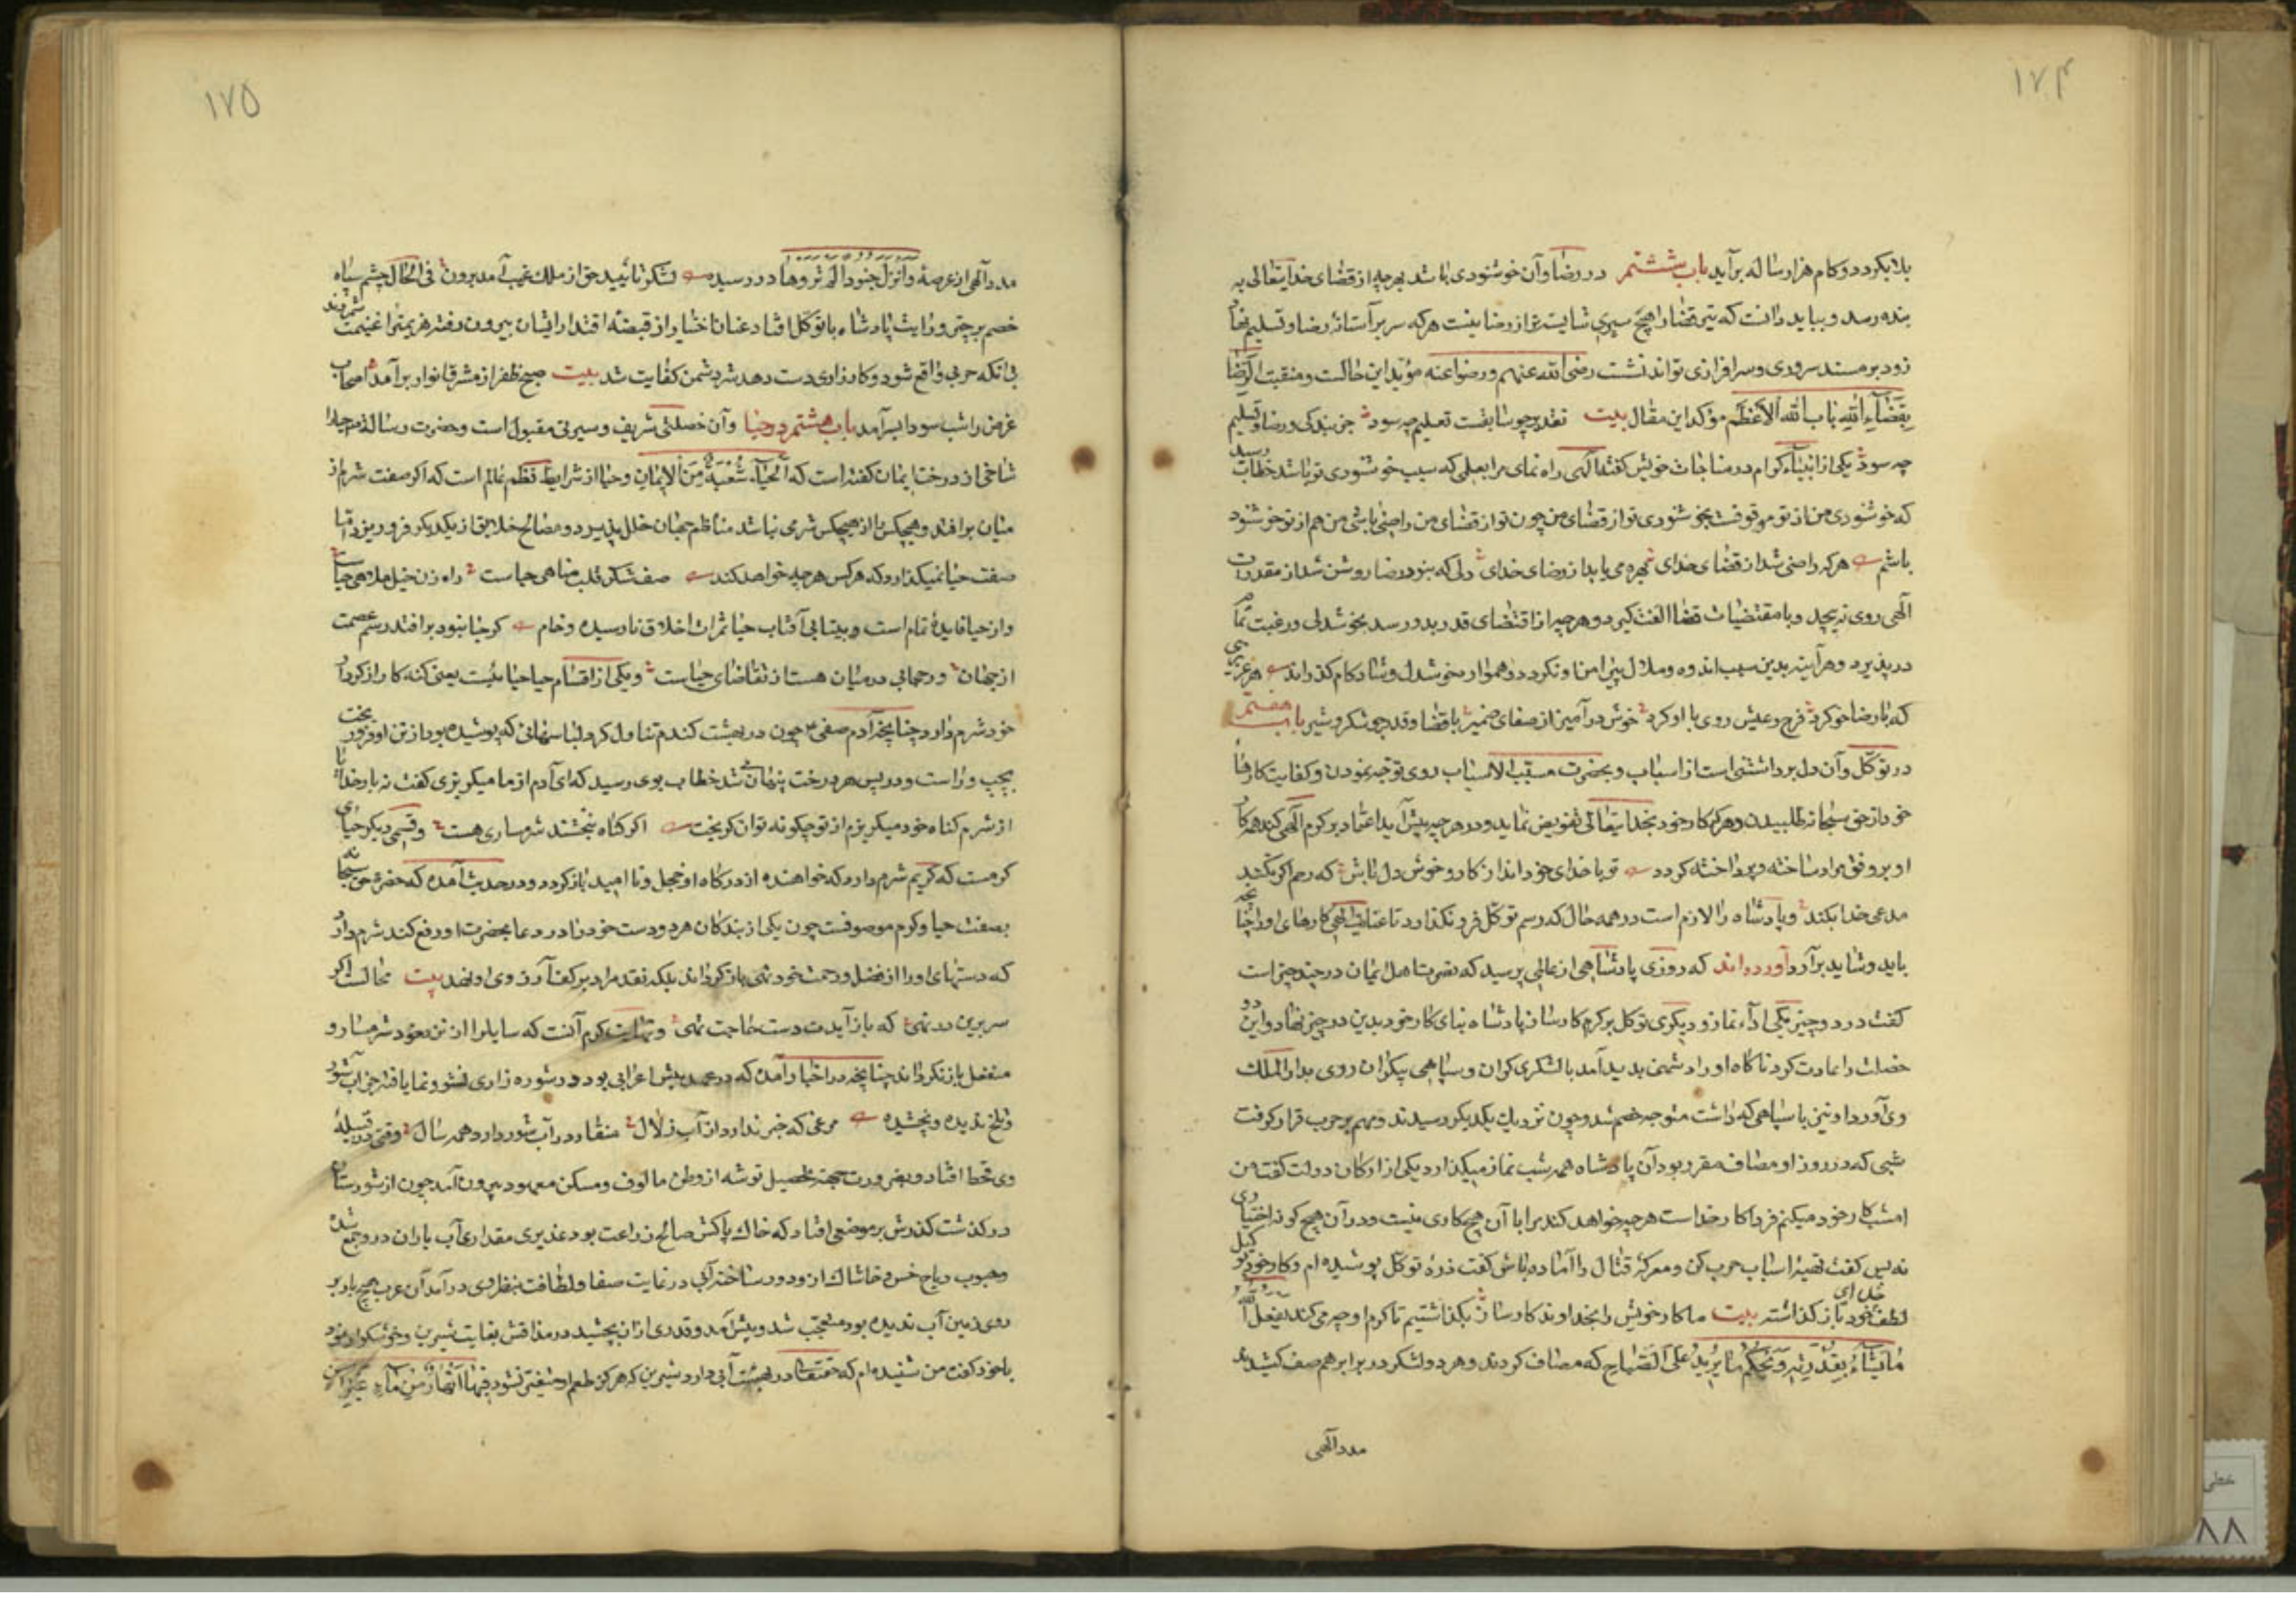 ۱۷۴
بلا بگردد و کام هزار ساله برآید باب ششم در رضا و آن خوشنودی باشد بهرچه از قضای خدایتعالی به
بنده رسد و بباید دانست که تیر قضا را هیچ سپری شایسته‌تر از رضا نیست هر که سر بر آستانهٔ رضا و تسلیم نهاد
زود بر مسند سروری و سرافرازی تواند نشست رضی الله عنهم و رضوا عنه مؤید این حالست و منقبت الرضا
بقضاء الله باب الله الاعظم مؤکد این مقال بیت تقدیر چو سابقست تعلیم چه سود جز بندگی و رضا و تسلیم
چه سود یکی از انبیاء کرام در مناجات خویش گفت الهی راه نمای مرا بعملی که سبب خوشنودی تو باشد خطاب رسید
که خوشنودی من از تو موقوفست بخوشنودی تو از قضای من چون تو از قضای من راضی باشی من هم از تو خوشنود
باشم هر که راضی شد از قضای خدای بهره می‌یابد از رضای خدای دلی که بنور رضا روشن شد از مقدرات
الهی روی نپیچد و با مقتضیات قضا الفت گیرد و هر چیز از اقتضای قدر بدو رسد بخوشدلی و رغبت تمام
در پذیرد و هر آینه بدین سبب اندوه و ملال پیرامن او نگردد و هموار خوشدل و شادکام گذراند هر عزیزی
که با رضا خو کرد فرح و عیش روی با او کرد خوش درآمیز از صفای ضمیر با قضا و قدر چو شکر و شیر باب هفتم
در توکل و آن دل برداشتن است از اسباب و بحضرت مسبب الاسباب روی توجه نمودن و کفایت کارها
خود از حق سبحانه طلبیدن و هر که کار خود بخدایتعالی تفویض نماید و در هر چیز پیش آید اعتماد بر کرم الهی کند همه کار
او بر وفق مراد ساخته و پرداخته گردد تو با خدای خود انداز کار و خوش دل باش که رحم اگر نکند
مدعی خدا بکند و پادشاه را لازم است در همه حال که رسم توکل فرو نگذارد تا عنایت الهی کارهای او را چنانچه
باید و شاید برآرد آورده‌اند که روزی پادشاهی از عالمی پرسید که نصرت اهل ایمان در چند چیز است
گفت در دو چیز یکی اداء نماز و دیگری توکل بر کرم کارساز پادشاه بنای کار خود بدین دو چیز نهاد و این دو
خصلت را عادت کرد ناگاه او را دشمنی پدید آمد با لشکری گران و سپاهی بیکران روی بدار الملک
وی آورد او نیز با سپاهی که داشت متوجه خصم شد و چون نزدیک یکدیگر رسیدند و مهم بر حرب قرار گرفت
شبی که در روز او مصاف مقرر بود آن پادشاه همه شب نماز میگذارد یکی از ارکان دولت گفت من
امشب کار خود میکنم فردا کار خداست هر چیز خواهد کند مرا با آن هیچ کاری نیست و در آن هیچ گونه اختیاری
نه پس گفت تهیهٔ اسباب حرب کن و معرکهٔ قتال را آماده باش گفت ذرهٔ توکل پوشیده‌ام و کار خود بوکیل
لطف خدای خود باز گذاشته بیت ما کار خویش را بخداوند کارساز بگذاشتیم تا کرم او چه می‌کند یفعل الله
ما یشاء بقدرته و یحکم ما یرید علی الصباح که مصاف کردند و هر دو لشکر در برابر هم صف کشیدند
مدد الهی
۱۷۵
مدد الهی از عرصهٔ وانزل جنودا لم تروها در رسید لشکر تایید حق از ملک غیب آمد برون فی الحال چشم سپاه
خصم بر چتر و رایت پادشاه با توکل افتاد عنان اختیار از قبضهٔ اقتدار ایشان بیرون رفته هزیمت را غنیمت شمردند
بی‌آنکه حربی واقع شود و کارزاری دست دهد شر دشمن کفایت شد بیت صبح ظفر از مشرق انوار برآمد اصحاب
غرض را شب سودا بسر آمد باب هشتم در حیا و آن خصلتی شریف و سیرتی مقبول است و حضرت رسالة حیا را
شاخی از درخت ایمان گفته است که الحیاء شعبة من الایمان و حیا از شرایط نظم عالم است که اگر صفت شرم از
میان برافتد و هیچکس را از هیچکس شرمی نباشد مناظم جهان خلل پذیرد و مصالح خلایق از یکدیگر فرو ریزد اما
صفت حیا نمیگذارد که هر کس هر چه خواهد کند صف شکن قلب مناهی حیاست راه زن خیل ملاهی حیاست
و از حیا فایدهٔ تمام است و بیتابی آفتاب حیا ثمرات اخلاق نارسیده و خام گر حیا نبود برافتد رسم عصمت
از جهان ور حمایی در میان هست از تقاضای حیاست و یکی از اقسام حیا حیا جنایتست یعنی گنه کار از کردار
خود شرم دارد چنانچه آدم صفی چون در بهشت گندم تناول کرد لباسهائی که پوشیده بود از تن او فرو ریخت
بچپ و راست و در پس هر درخت پنهان می‌شد خطاب بوی رسید که ای آدم از ما میگریزی گفت نه بار خدایا
از شرم گناه خود میگریزم از تو چگونه توان گریخت اگر گناه ببخشند شرمساری هست و قسمی دیگر حیای
کرمست که کریم شرم دارد که خواهنده از درگاه او خجل و ناامید باز گردد و در حدیث آمده که حضرت حق سبحانه
بصفت حیا و کرم موصوفست چون یکی از بندگان هر دو دست خود را در دعا بحضرت او رفع کند شرم دارد
که دستهای او را از فضل و رحمت خود تهی باز گرداند بلکه نقد مراد بر کف آرزوی او نهد بیت محالست اگر
سر برین در نهی که باز آیدت دست حاجت تهی و نهایت کرم آنست که سایل را از تن معهود شرمسار و
منفعل باز نگرداند چنانچه در اخبار آمده که در عهد پیش اعرابی بود در شوره زاری نشو و نما یافته جز آب شور
و تلخ ندیده و نچشیده مرغی که خبر ندارد از آب زلال منقار در آب شور دارد همه سال وقتی در قبیلهٔ
وی قحط افتاد و بضرورت جهة تحصیل توشه از وطن مالوف و مسکن معهود بیرون آمد چون از شورستان
در گذشت گذرش بر موضعی افتاد که خاک پاکش صالح زراعت بود غدیری مقداری آب باران در وی جمع شده
و هبوب ریاح خس و خاشاک از و دور ساخته آبی در غایت صفا و لطافت بنظر وی در آمد آن عرب هیچ بار بر
روی زمین آب ندیده بود متعجب شد و پیش آمد و قدری از آن بچشید در مذاقش بغایت شیرین و خوشگوار نمود
با خود گفت من شنیده‌ام که حقتعالی در بهشت آبی دارد شیرین که هرگز طعم او متغیر نشود فیها انهار من ماء غیر آسن
خطی
۸۸